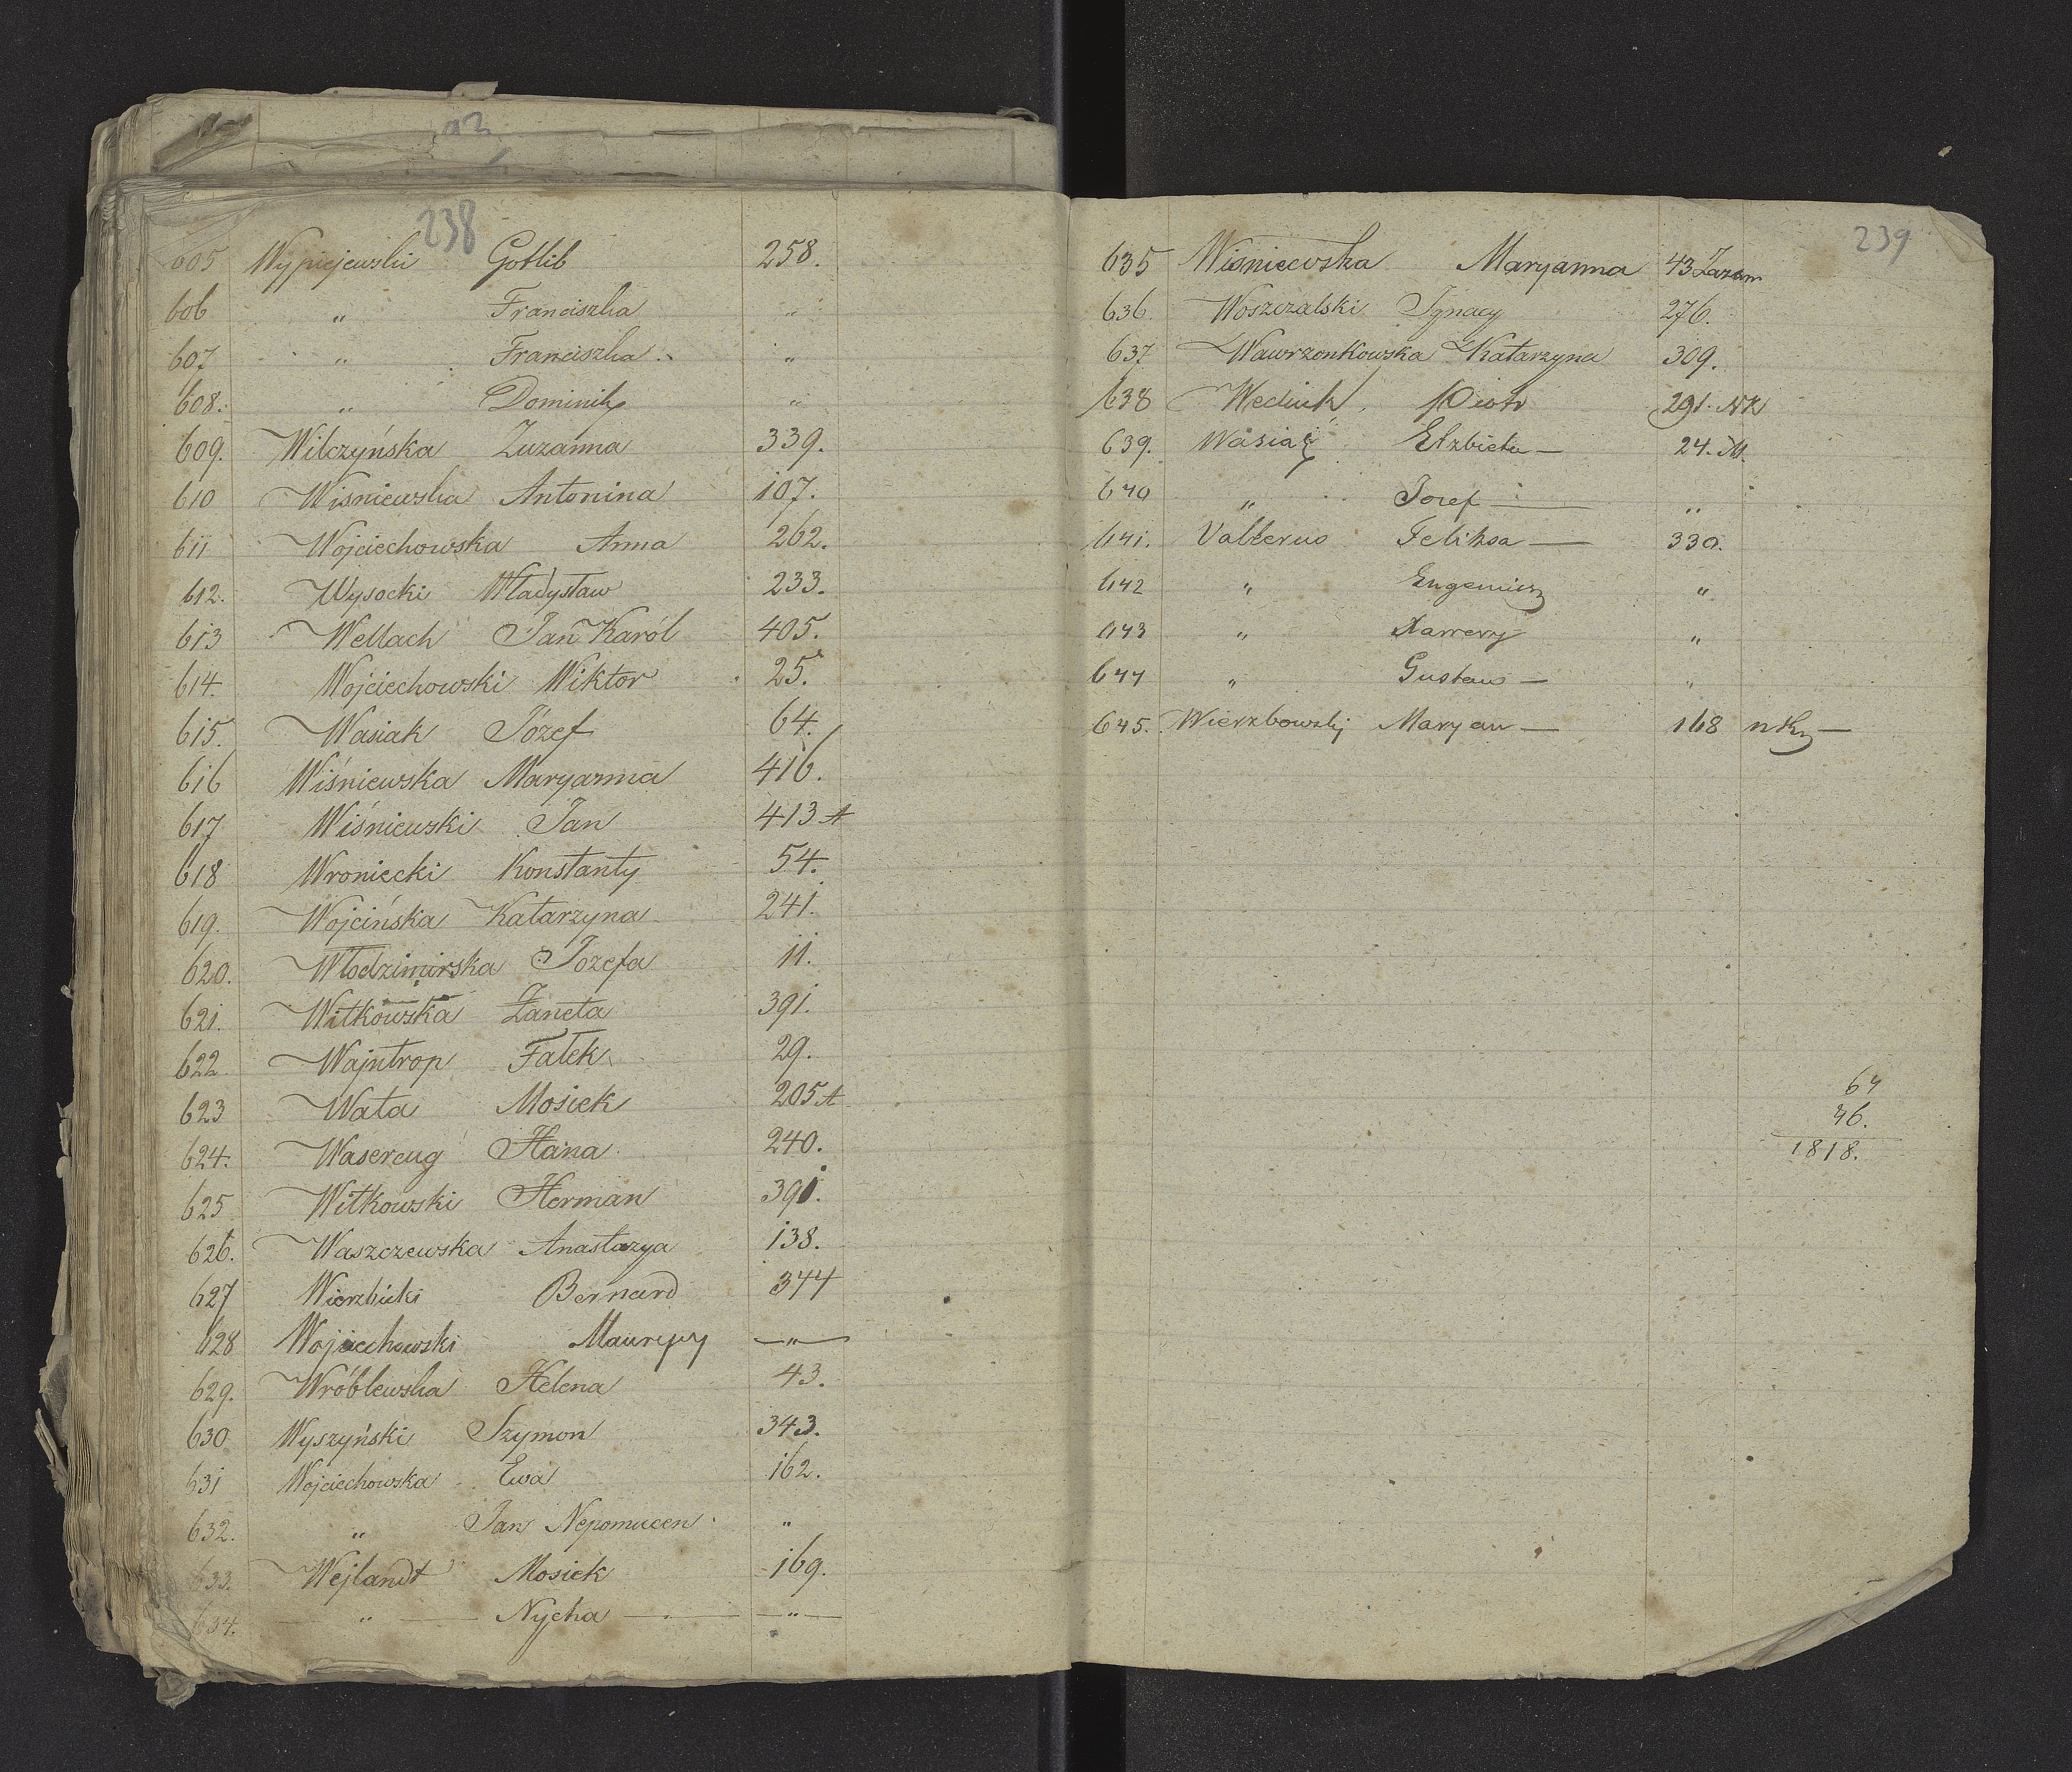 93
238
605 Wypiejewski Gotlib 258.
606 " Franciszka "
607 " Franciszka "
608. " Dominik "
609. Wilczyńska Zuzanna 339.
610 Wisniewska Antonina 107.
611 Wojciechowska Anna 262.
612. Wysocki Władysław 233.
613 Wellach Jan Karól 405.
614. Wojciechowski Wiktor 25.
615. Wasiak Józef 64.
616 Wiśniewska Maryanna 416.
617 Wiśniewski Jan 413 A
618 Wroniecki Konstanty 54.
619. Wojcińska Katarzyna 241.
620. Włodzimirska Jozefa 11.
621. Witkowska Żaneta 391.
622 Wajntrop Fałek 29.
623 Wata Mosiek 205 A
624. Wasercug Hana 240.
625 Witkowski Herman 391.
626. Waszczewska Anastazya 138.
627 Wierzbicki Bernard 344
628 Wojciechowski Maurycy — " —
629. Wróblewska Helena 43.
630 Wyszyński Szymon 343.
631 Wojciechowska Ewa 162.
632. " Jan Nepomucen "
633. Wejlandt Mosiek 169.
634. — " — Nycha — — " —
239
635 Wiśniewska Maryanna 43
636. Woszczalski Ignacy 276.
637 Wawrzonkowska Katarzyna 309.
638 Piotr 291. NK
639. Elzbieta — 24. M.
640 " Jozef — "
641. Felixsa — 330.
642 " Eugeniusz "
643 " Xawery "
644 " Gustaw — "
645. Wierzbowski Maryan — 168
64
46.
1818.